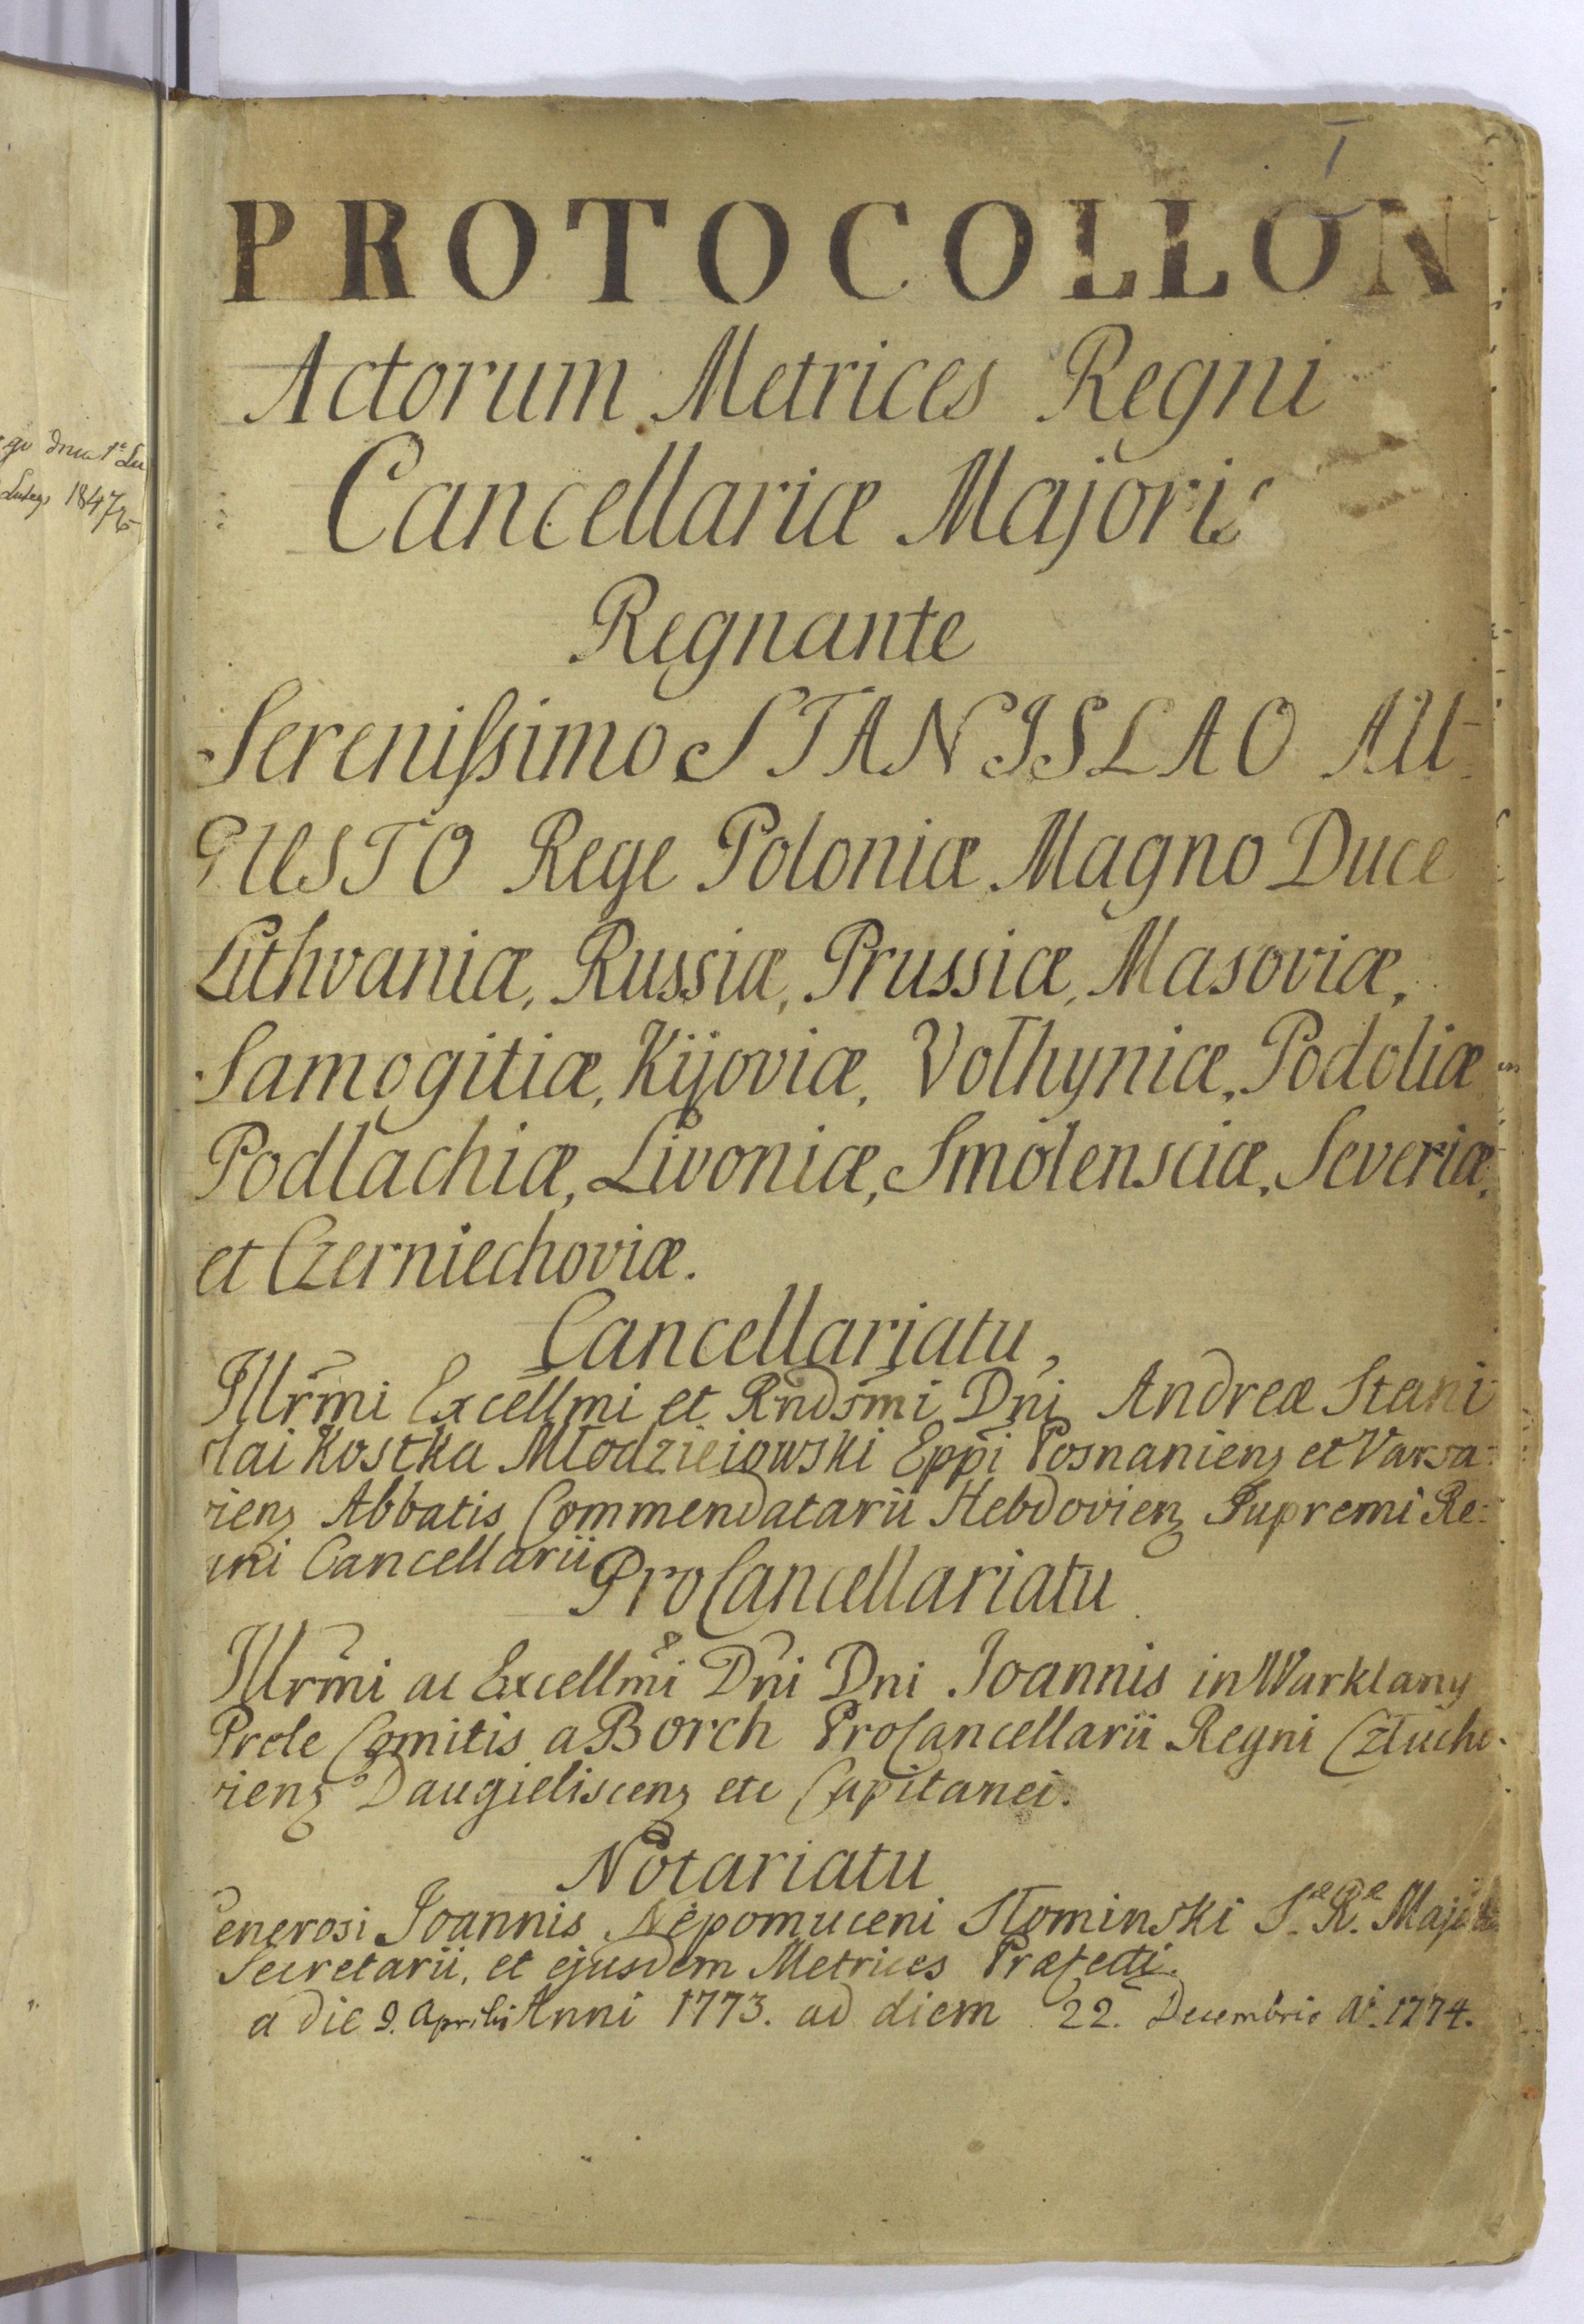 go dnia 1º Lu
Lutego 1847 r
I
PROTOCOLLON
Actorum Metrices Regni
Cancellariæ Majoris
Regnante
Serenissimo STANISLAO AU-
GUSTO Rege Poloniæ Magno Duce
Lithvaniæ, Russiæ, Prussiæ, Masoviæ,
Samogitiæ, Kijoviæ, Volhyniæ, Podoliæ
Podlachiæ, Livoniæ, Smolensciæ, Severiæ,
et Czerniechoviæ.
Cancellariatu,
Illrmi Excellmi et Rndsmi Dni Andreæ Stani
slai Kostka Młodzieiowski Eppi Posnaniens et Varsa-
viens Abbatis Commendatarii Hebdoviens Supremi Re-
gni Cancellarii
ProCancellariatu
Illrmi ac Excellmi Dni Dni Joannis in Warklany
Prele Comitis a Borch ProCancellarii Regni Człucho-
viens Daugieliscens etc Capitanei.
Notariatu
Generosi Joannis Nepomuceni Słominski S.æ R.æ Majttis
Secretarii, et ejusdem Metrices Præfecti.
a die 9. Aprilis Anni 1773. ad diem 22. Decembris Ai. 1774.